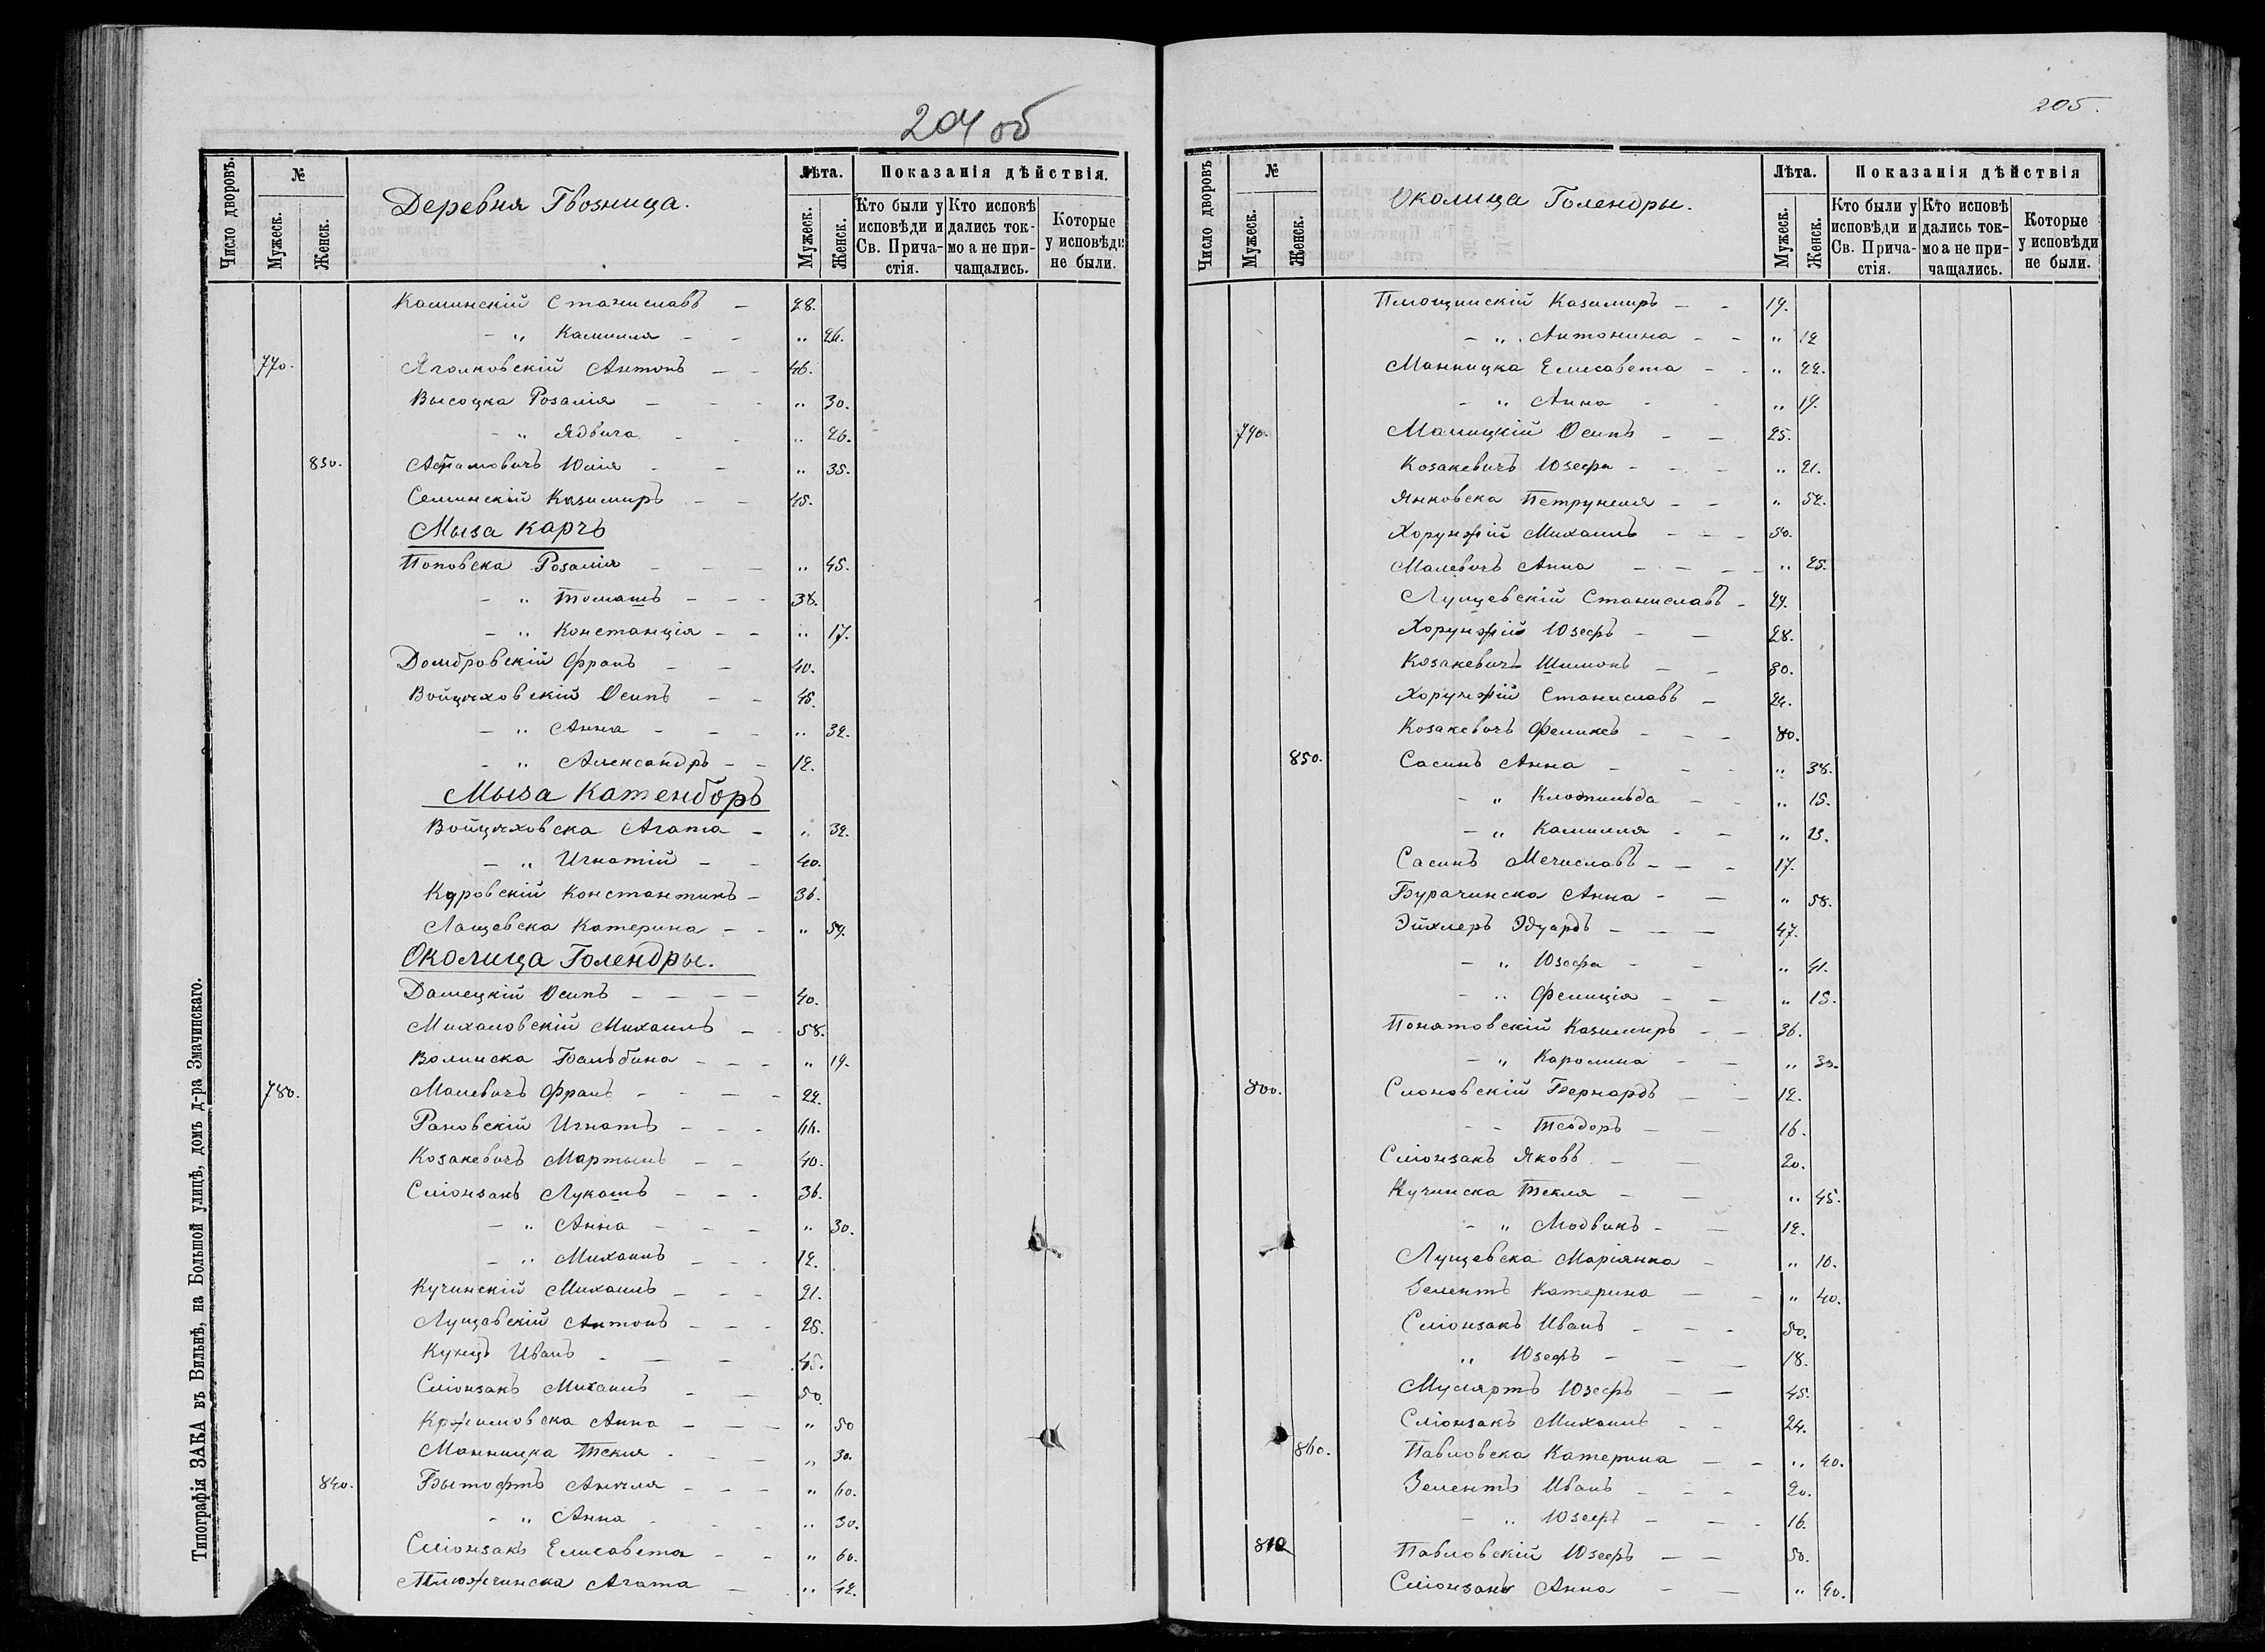 204 об
Число дворовъ.
№
Мужеск.
Женск.
Деревня Гвозница.
Лѣта.
Мужеск.
Женск.
Показанія дѣйствія.
Кто были у исповѣди и Св. Прича-стія.
Кто исповѣ дались ток-мо а не при-чащались.
Которые у исповѣди не были.
Каминскій Станиславъ — 28.
— „ Камилля — — „ 24.
770. Яголковскій Антонъ — — 46.
Высоцка Розалія — - - „ 30.
- „ Ядвига - - „ 26.
830. Адамовичъ Юлія - — „ 35.
Семинскій Казимиръ — — 45.
Мыза Карчъ
Поповска Розалія — — — „ 45.
— „ Томашъ — — - 38.
— „ Констанція — — „ 17.
Домбровскій Франъ — — 40.
Войцѣховскій Осипъ — — 45.
— „ Анна — - — „ 32.
- „ Александръ — — 12.
Мыза Катенборъ
Войцѣховска Агата — „ 32.
— „ Игнатій — — 40.
Куровскій Константинъ — 36.
Лащевска Катерина — - „ 54.
Околица Голендры.
Домецкій Осипъ — — — — 40.
Михаловскій Михаилъ — - 58.
Волинска Бальбина — — - „ 19.
780. Малевичъ Франъ — - — - 22.
Рановскій Игнатъ — — - 46.
Козакевичъ Мартынъ — — 40.
Сліонзакъ Лукашъ — — - 36.
— „ Анна — - — „ 30.
— „ Михаилъ — — - 12.
Кучинскій Михаилъ — — - 21.
Лущевскій Антонъ — — - 25.
Кунцъ Иванъ - — — 45.
Сліонзакъ Михаилъ - — 50
Кржимовска Анна — — — „ 50
Манницка Текля - - — „ 30.
840. Бытофтъ Анеля — — — „ 60.
- „ Анна - - - „ 30.
Сліонзакъ Елисавета — - „ 60.
Плюжчинска Агата — „ 42.
Типографія ЗАКА въ Вильнѣ, на Большой улицѣ, домъ д-ра Змачинскаго.
205.
Число дворовъ
№
Мужеск.
Женск.
Околица Голендры.
Лѣта.
Мужеск.
Женск.
Показанія дѣйствія
Кто были у исповѣди и Св. Прича-стія.
Кто исповѣ дались ток-мо а не при-чащались.
Которые у исповѣди не были.
Плющинскій Казимиръ — — 19.
— „ Антонина — — „ 12
Манницка Елисавета — - „ 22.
- „ Анна - - „ 19.
790. Малицкій Осипъ — — 25.
Козакевичъ Юзефа — — — „ 21.
Янковска Петрунеля — — „ 52.
Хорунжій Михаилъ — — — 50.
Малевичъ Анна — - — — „ 25.
Лущевскій Станиславъ — 24.
Хорунжій Юзефъ — — 28.
Козакевичъ Шимонъ — — 30.
Хорунжій Станиславъ — 24.
Козакевичъ Феликсъ — — — 80.
850. Сасинъ Анна — - - „ 38.
— „ Клотильда — - „ 15.
— „ Камилля - — „ 13.
Сасинъ Мечиславъ — — — 17.
Бурачинска Анна — — „ 58.
Эйхлеръ Эдуардъ — — — 47.
— „ Юзефа — - „ 41.
- „ Фелиція — — „ 15.
Понятовскій Казимиръ — — 36.
— „ Каролина — — „ 30.
800. Слоновскій Бернардъ — — 12.
- - Теодоръ — — 16.
Сліонзакъ Яковъ - — 20.
Кучинска Текля — — „ 45.
- „ Людвикъ — — 12.
Лущевска Маріянна — „ 10.
Зелентъ Катерина — — „ 40.
Сліонзакъ Иванъ — — - 50.
„ Юзефъ — — — 18.
Мусяртъ Юзефъ — — 45.
Сліонзакъ Михаилъ - — 24.
860. Павловска Катерина — — „ 40.
Зелентъ Иванъ — — - 20.
— „ Юзефъ — — - 16.
810 Павловскій Юзефъ — — 50.
Сліонзакъ Анна — — „ 20.